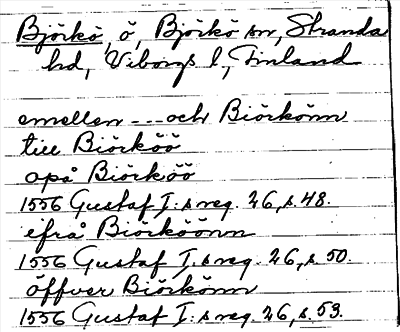 Björkö, ö, Björkö sn, Stranda
hd, Viborgs l, Finland
emellen --- och Biörkönn
till Biörköö
opå Biörköö
1556 Gustaf I:s reg. 26, s. 48.
efrå Biörköönn
1556 Gustaf I:s reg. 26, s. 50.
öffver Biörkönn
1556 Gustaf I:s reg. 26, s. 53.